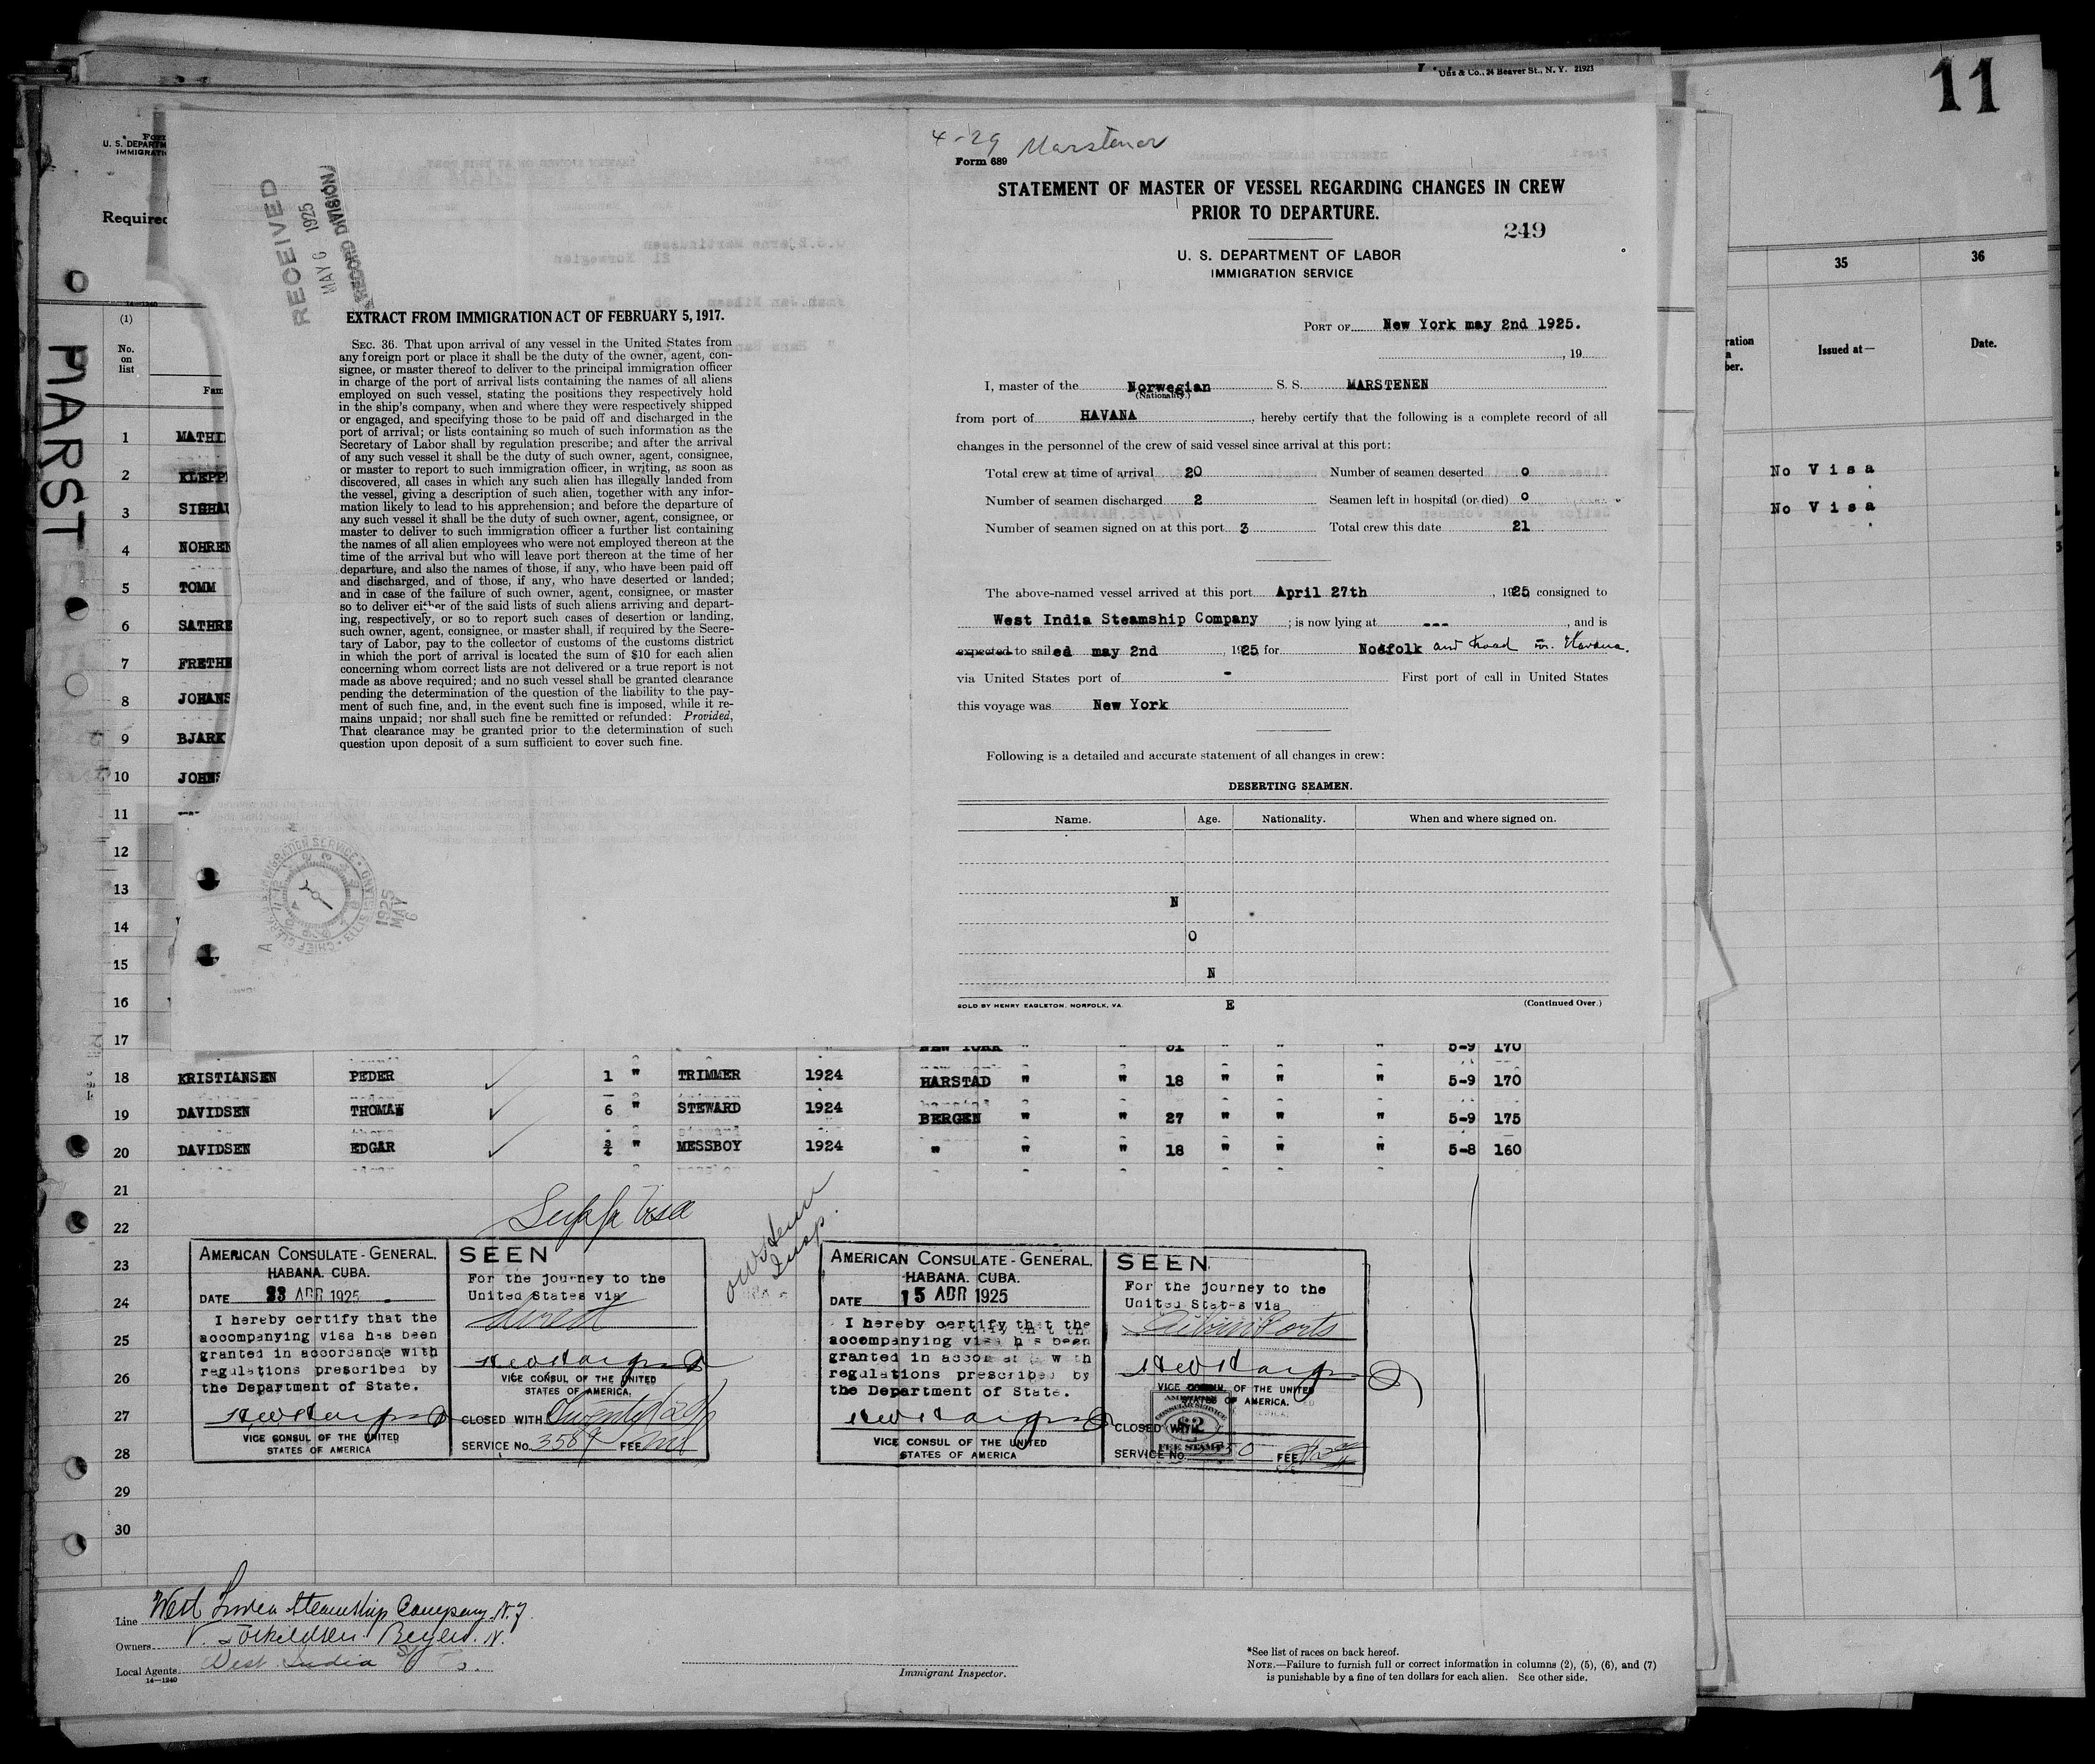 Uhs & Co., 24 Beaver St., N. Y. 21923
11
Form
U. S. DEPARTM
IMMIGRATI
Required
MARST
RECEIVED
MAY 6 1925
RECORD DIVISION
EXTRACT FROM IMMIGRATION ACT OF FEBRUARY 5, 1917.
SEC. 36. That upon arrival of any vessel in the United States from
any foreign port or place it shall be the duty of the owner, agent, con-
signee, or master thereof to deliver to the principal immigration officer
in charge of the port of arrival lists containing the names of all aliens
employed on such vessel, stating the positions they respectively hold
in the ship's company, when and where they were respectively shipped
or engaged, and specifying those to be paid off and discharged in the
port of arrival; or lists containing so much of such information as the
Secretary of Labor shall by regulation prescribe; and after the arrival
of any such vessel it shall be the duty of such owner, agent, consignee,
or master to report to such immigration officer, in writing, as soon as
discovered, all cases in which any such alien has illegally landed from
the vessel, giving a description of such alien, together with any infor-
mation likely to lead to his apprehension; and before the departure of
any such vessel it shall be the duty of such owner, agent, consignee, or
master to deliver to such immigration officer a further list containing
the names of all alien employees who were not employed thereon at the
time of the arrival but who will leave port thereon at the time of her
departure, and also the names of those, if any, who have been paid off
and discharged, and of those, if any, who have deserted or landed;
and in case of the failure of such owner, agent, consignee, or master
so to deliver either of the said lists of such aliens arriving and depart-
ing, respectively, or so to report such cases of desertion or landing,
such owner, agent, consignee, or master shall, if required by the Secre-
tary of Labor, pay to the collector of customs of the customs district
in which the port of arrival is located the sum of $10 for each alien
concerning whom correct lists are not delivered or a true report is not
made as above required; and no such vessel shall be granted clearance
pending the determination of the question of the liability to the pay-
ment of such fine, and, in the event such fine is imposed, while it re-
mains unpaid; nor shall such fine be remitted or refunded: Provided,
That clearance may be granted prior to the determination of such
question upon deposit of a sum sufficient to cover such fine.
IMMIGRATION SERVICE ELLIS ISLAND CHIEF CLERK
1925 MAY 6
4-29 Marstenen
Form 689
STATEMENT OF MASTER OF VESSEL REGARDING CHANGES IN CREW
PRIOR TO DEPARTURE.
249
U. S. DEPARTMENT OF LABOR
IMMIGRATION SERVICE
PORT OF New York may 2nd 1925.
, 19
I, master of the Norwegian S. S. MARSTENEN
(Nationality.)
from port of HAVANA, hereby certify that the following is a complete record of all
changes in the personnel of the crew of said vessel since arrival at this port:
Total crew at time of arrival 20 Number of seamen deserted 0
Number of seamen discharged 2 Seamen left in hospital (or died) 0
Number of seamen signed on at this port 3 Total crew this date 21
The above-named vessel arrived at this port April 27th, 1925, consigned to
West India Steamship Company; is now lying at ---, and is
expected to sailed may 2nd, 1925 for Nodfolk and to load for Havana.
via United States port of - First port of call in United States
this voyage was New York
Following is a detailed and accurate statement of all changes in crew:
DESERTING SEAMEN.
Name. Age. Nationality. When and where signed on.
N
O
N
E
SOLD BY HENRY EAGLETON, NORFOLK, VA. (Continued Over.)
35 36
ration
ber.
Issued at— Date.
No Visa
No Visa
14—1240
(1)
No. on list
Fam
1 MATHI
2 KLEPP
3 SIGHAU
4 NOHREN
5 TOMM
6 SATHRE
7 FRETHE
8 JOHANS
9 BJARK
10 JOHNS
11 ---
12
13
14
15
16
17 NEW YORK " " 31 " " " 5-9 170
18 KRISTIANSEN PEDER 1 " TRIMMER 1924 HARSTAD " " 18 " " " 5-9 170
19 DAVIDSEN THOMAS 6 " STEWARD 1924 BERGEN " " 27 " " " 5-9 175
20 DAVIDSEN EDGAR " MESSBOY 1924 " " " 18 " " " 5-8 160
21
22
23
24
25
26
27
28
29
30
Suppl Visa
AMERICAN CONSULATE-GENERAL.
HABANA. CUBA.
DATE 23 APR 1925
I hereby certify that the
accompanying visa has been
granted in accordance with
regulations prescribed by
the Department of State.
VICE CONSUL OF THE UNITED
STATES OF AMERICA
SEEN
For the journey to the
United States via
direct
VICE CONSUL OF THE UNITED
STATES OF AMERICA.
CLOSED WITH Twenty (20)
SERVICE No. 3589 FEE nil
Insp.
AMERICAN CONSULATE-GENERAL.
HABANA. CUBA.
DATE 15 APR 1925
I hereby certify that the
accompanying visa has been
granted in accordance with
regulations prescribed by
the Department of State.
VICE CONSUL OF THE UNITED
STATES OF AMERICA
SEEN
For the journey to the
United States via
Cuban Ports
VICE CONSUL OF THE UNITED
STATES OF AMERICA.
AMERICAN CONSULAR SERVICE
$2
FEE STAMP
CLOSED WITH
SERVICE No. FEE
Line West India Steamship Company N.Y.
Owners V. Torkildsen Bergen. N.
Local Agents West India S/S Co.
14—1240
Immigrant Inspector.
*See list of races on back hereof.
NOTE.—Failure to furnish full or correct information in columns (2), (5), (6), and (7)
is punishable by a fine of ten dollars for each alien. See other side.